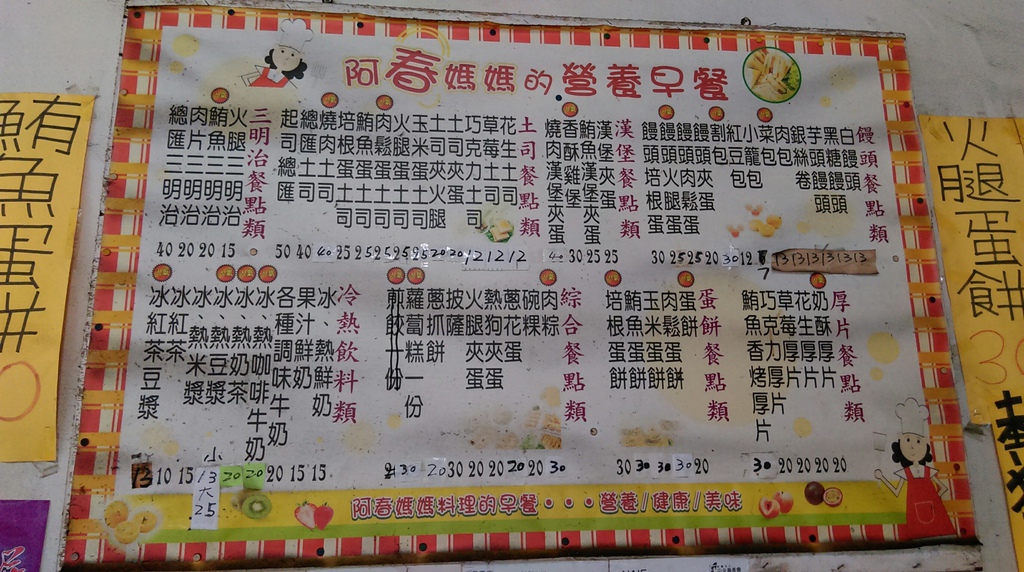 阿春媽媽的營養早餐
饅頭餐點類
白饅頭
黑糖饅頭
芋頭饅頭
銀絲卷
肉包
菜包
小籠包
紅豆包
割包
饅頭夾蛋
饅頭肉鬆蛋
饅頭火腿蛋
饅頭培根蛋
30 25 25 20 30 12 7 13 13 13 13 13 13
漢堡餐點類
漢堡夾蛋
鮪魚漢堡夾蛋
香酥雞堡
燒肉漢堡夾蛋
30 25 25
土司餐點類
花生土司
草莓土司
巧克力土司
土司夾蛋
土司夾火腿
玉米蛋土司
火腿蛋土司
肉鬆蛋土司
鮪魚蛋土司
培根蛋土司
燒肉土司
總匯土司
起司總匯
50 40 40 25 25 25 25 25 20 20 12 12 12
三明治餐點類
火腿三明治
鮪魚三明治
肉片三明治
總匯三明治
40 20 20 15
厚片餐點類
奶酥厚片
花生厚片
草莓厚片
巧克力厚片
鮪魚香烤厚片
30 20 20 20 20
蛋餅餐點類
蛋餅
肉鬆蛋餅
玉米蛋餅
鮪魚蛋餅
培根蛋餅
30 30 30 30 20
綜合餐點類
肉粽
碗粿
蔥花蛋
熱狗夾蛋
火腿夾蛋
披薩
蔥抓餅
蘿蔔糕一份
煎餃十份
30 20 30 20 20 20 20 30
冷熱飲料類
冰、熱鮮奶
果汁、鮮奶
各種調味牛奶
冰、熱咖啡牛奶
冰、熱奶茶
冰、熱豆漿
冰、熱米漿
冰紅茶
冰紅茶豆漿
13 10 15 小13大25 20 20 20 15 15
阿春媽媽料理的早餐・・・營養/健康/美味
鮪魚蛋餅
火腿蛋餅